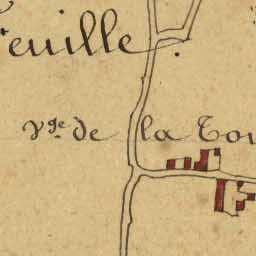 euille.
Vge. de la Tou